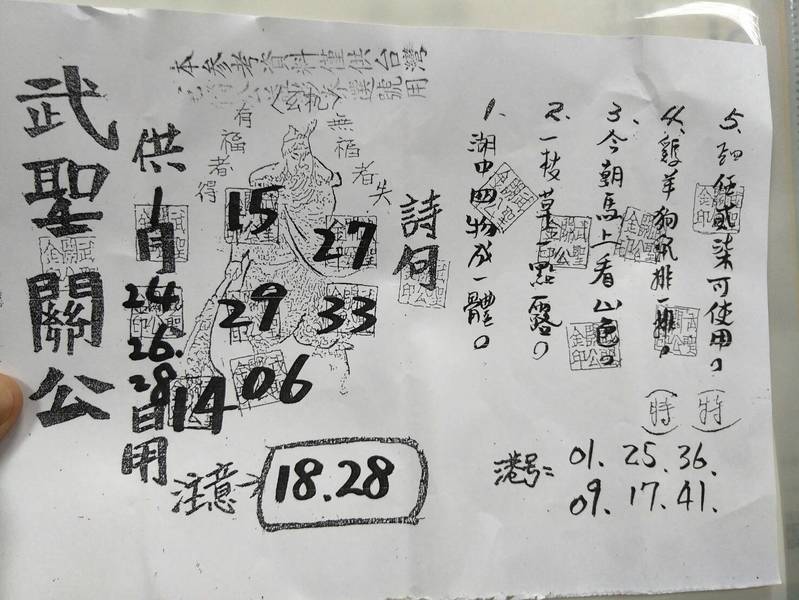 武聖關公
本參考資料僅供台灣
選號用
有福者得
無福者失
供1月24.26.28日用
15
27
29
33
06
14
注意→
18.28
詩句
1、湖中四物成一體。
2、一枝草一點露。
3、今朝馬上看山色。
4、雞羊狗
5、可使用。
(時)
(特)
港号=
01. 25. 36.
09. 17. 41.
武聖關公金印